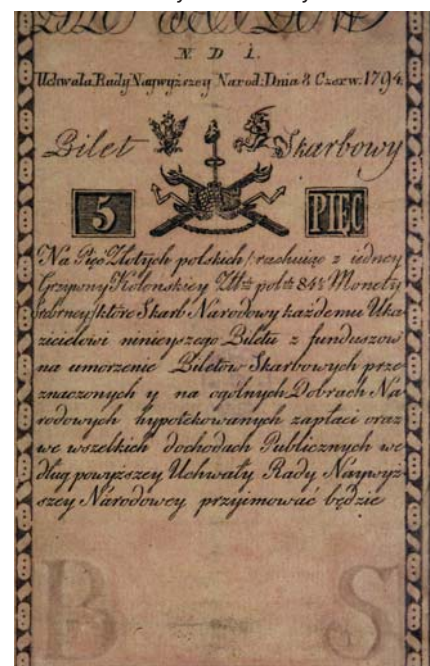 N D 1.
Uchwała Rady Naywyższey Narod: Dnia 8 Czerw: 1794
Bilet Skarbowy
5 PIĘĆ
Na Pięć Złotych polskich rachuiąc z iedney
Grzywny Kolonskiey Zł pol: 84½ Monety
srebrney które Skarb Narodowy każdemu Uka-
zicielowi ninieyszego Biletu z funduszow
na umorzenie Biletow Skarbowych prze-
znaczonych y na ogólnych Dobrach Na-
rodowych hypotekowanych zapłaci oraz
we wszelkich dochodach Publicznych we-
dług powyższey Uchwały Rady Naywyż-
szey Narodowey przyimować będzie
B S